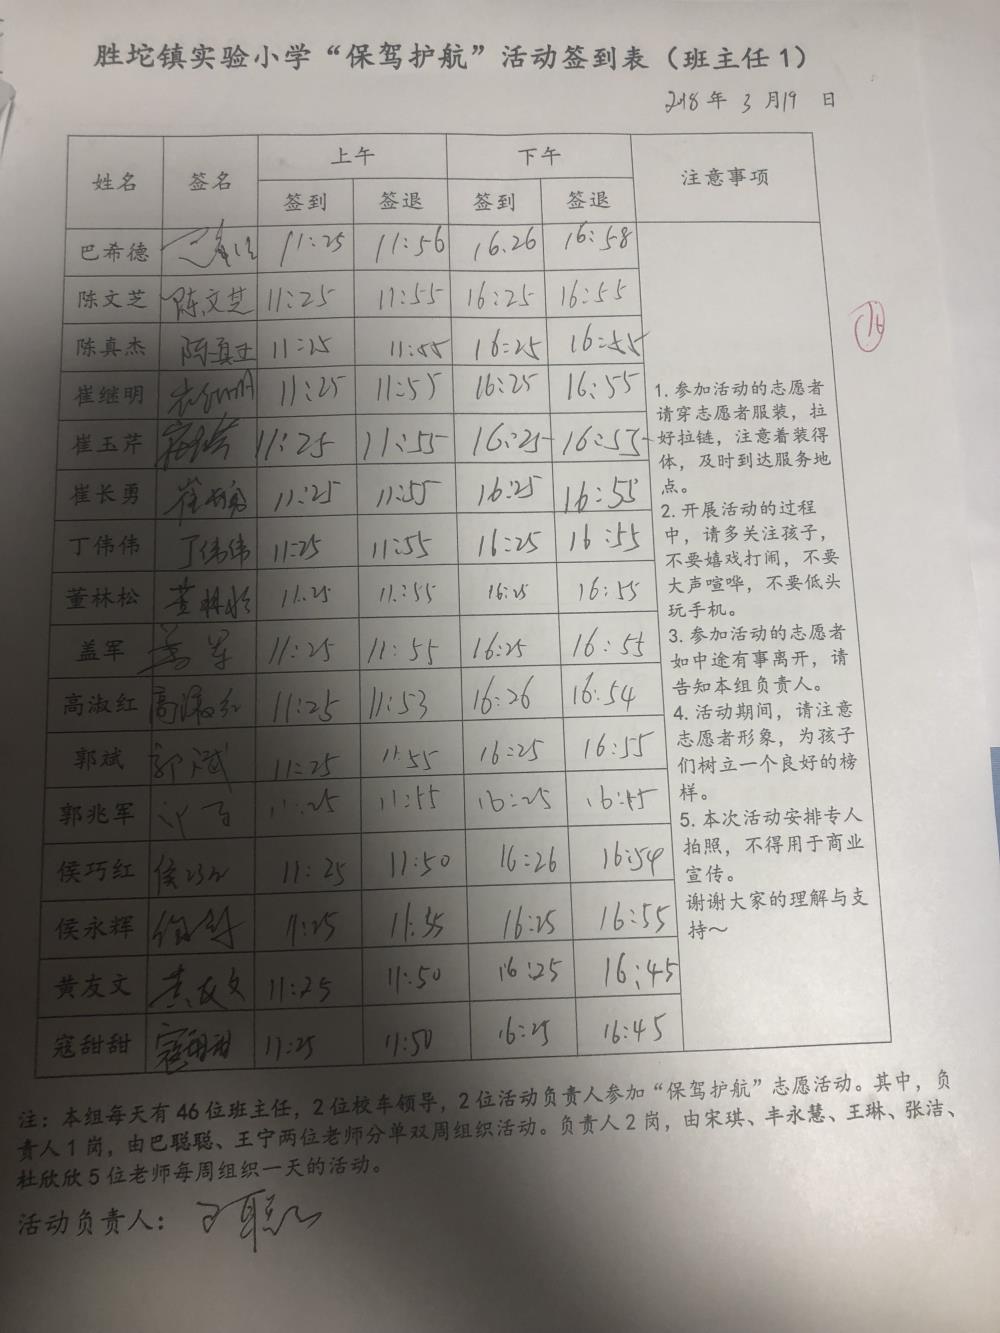 胜坨镇实验小学“保驾护航”活动签到表（班主任1）
2018年 3月19日
姓名 签名 上午 下午 注意事项
签到 签退 签到 签退
巴希德 11:25 11:56 16.26 16:58
陈文芝 陈文芝 11:25 11:55 16:25 16:55
陈真杰 陈真杰 11:25 11:55 16:25 16:55
崔继明 崔继明 11:25 11:55 16:25 16:55
崔玉芹 11:25 11:55 16:25 16:55
崔长勇 崔长勇 11:25 11:55 16:25 16:55
丁伟伟 丁伟伟 11:25 11:55 16:25 16:55
董林松 董林松 11:25 11:55 16:25 16:55
盖军 盖军 11:25 11:55 16:25 16:55
高淑红 高淑红 11:25 11:53 16:26 16:54
郭斌 郭斌 11:25 11:55 16:25 16:55
郭兆军 11:25 11:55 16:25 16:55
侯巧红 侯巧红 11:25 11:50 16:26 16:54
侯永辉 11:25 11:55 16:25 16:55
黄友文 黄友文 11:25 11:50 16:25 16:45
寇甜甜 寇甜甜 11:25 11:50 16:25 16:45
1. 参加活动的志愿者
请穿志愿者服装，拉
好拉链，注意着装得
体，及时到达服务地
点。
2. 开展活动的过程
中，请多关注孩子，
不要嬉戏打闹，不要
大声喧哗，不要低头
玩手机。
3. 参加活动的志愿者
如中途有事离开，请
告知本组负责人。
4. 活动期间，请注意
志愿者形象，为孩子
们树立一个良好的榜
样。
5. 本次活动安排专人
拍照，不得用于商业
宣传。
谢谢大家的理解与支
持～
注：本组每天有46位班主任，2位校车领导，2位活动负责人参加“保驾护航”志愿活动。其中，负
责人1岗，由巴聪聪、王宁两位老师分单双周组织活动。负责人2岗，由宋琪、丰永慧、王琳、张洁、
杜欣欣5位老师每周组织一天的活动。
活动负责人：